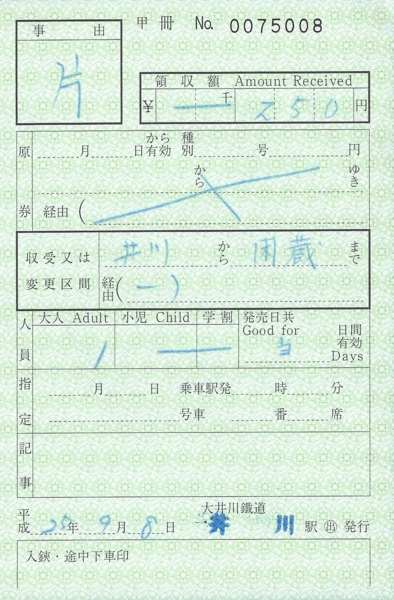 甲冊 No. 0075008
事由
片
領収額 Amount Received
¥ 千 250円
原券
月 日から有効 種別 号 円
から ゆき
経由(
収受又は変更区間
井川 から 閑蔵 まで
経由(ー)
人員
大人 Adult 小児 Child 学割 発売日共 Good for
1 当 日間有効 Days
指定
月 日 乗車駅発 時 分
号車 番 席
記事
平成 25年 9月 8日
大井川鐵道
井川駅 ㊓ 発行
入鋏・途中下車印